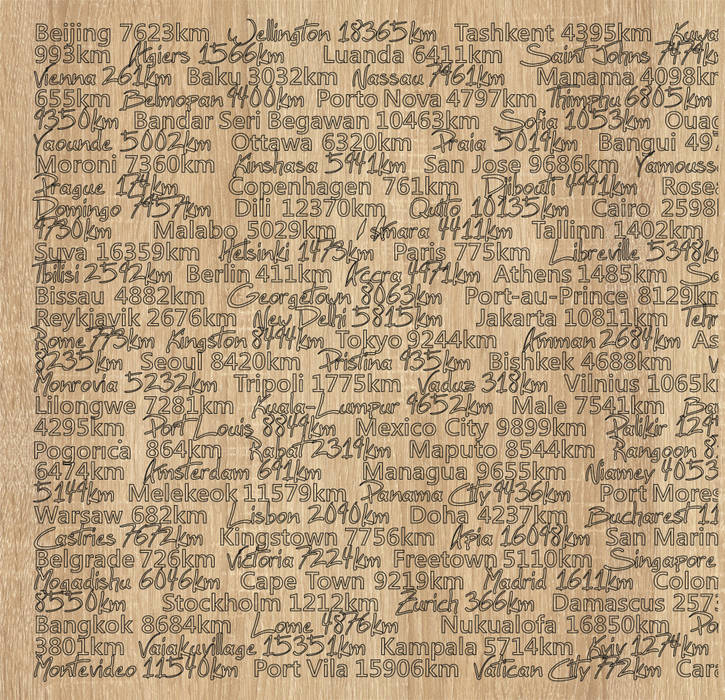 Beijing 7623km Wellington 18365km Tashkent 4395km
993km Algiers 1566km Luanda 6411km Saint Johns 7474k
Vienna 261km Baku 3032km Nassau 7961km Manama 4098k
655km Belmopan 9400km Porto Nova 4797km Thimphu 6805km
9350km Bandar Seri Begawan 10463km Sofia 1053km
Yaounde 5002km Ottawa 6320km Praia 5019km Bangui
Moroni 7360km Kinshasa 5941km San Jose 9686km
Prague 174km Copenhagen 761km Djibouti 4991km
Domingo 7957km Dili 12370km Quito 10135km Cairo 2598
4730km Malabo 5029km Asmara 4411km Tallinn 1402km
Suva 16359km Helsinki 1473km Paris 775km Libreville 5398k
Tbilisi 2592km Berlin 411km Accra 4971km Athens 1485km
Bissau 4882km Georgetown 8063km Port-au-Prince 8129k
Reykjavik 2676km New Delhi 5815km Jakarta 10811km
Rome 773km Kingston 8494km Tokyo 9244km Amman 2684km
8235km Seoul 8420km Pristina 935km Bishkek 4688km
Monrovia 5232km Tripoli 1775km Vaduz 318km Vilnius 1065k
Lilongwe 7281km Kuala-Lumpur 9652km Male 7541km
4295km Port Louis 8849km Mexico City 9899km Palikir
Pogorica 864km Rabat 2319km Maputo 8544km Rangoon
6474km Amsterdam 691km Managua 9655km Niamey 4053
5149km Melekeok 11579km Panama City 9436km Port Mores
Warsaw 682km Lisbon 2090km Doha 4237km Bucharest
Castries 7672km Kingstown 7756km Apia 16098km San Marin
Belgrade 726km Victoria 7224km Freetown 5110km Singapore
Mogadishu 6046km Cape Town 9219km Madrid 1611km Colom
8550km Stockholm 1212km Zurich 366km Damascus 257
Bangkok 8684km Lome 4876km Nukualofa 16850km
3801km Vaiakuvillage 15351km Kampala 5714km Kyiv 1274km
Montevideo 11540km Port Vila 15906km Vatican City 772km Cara